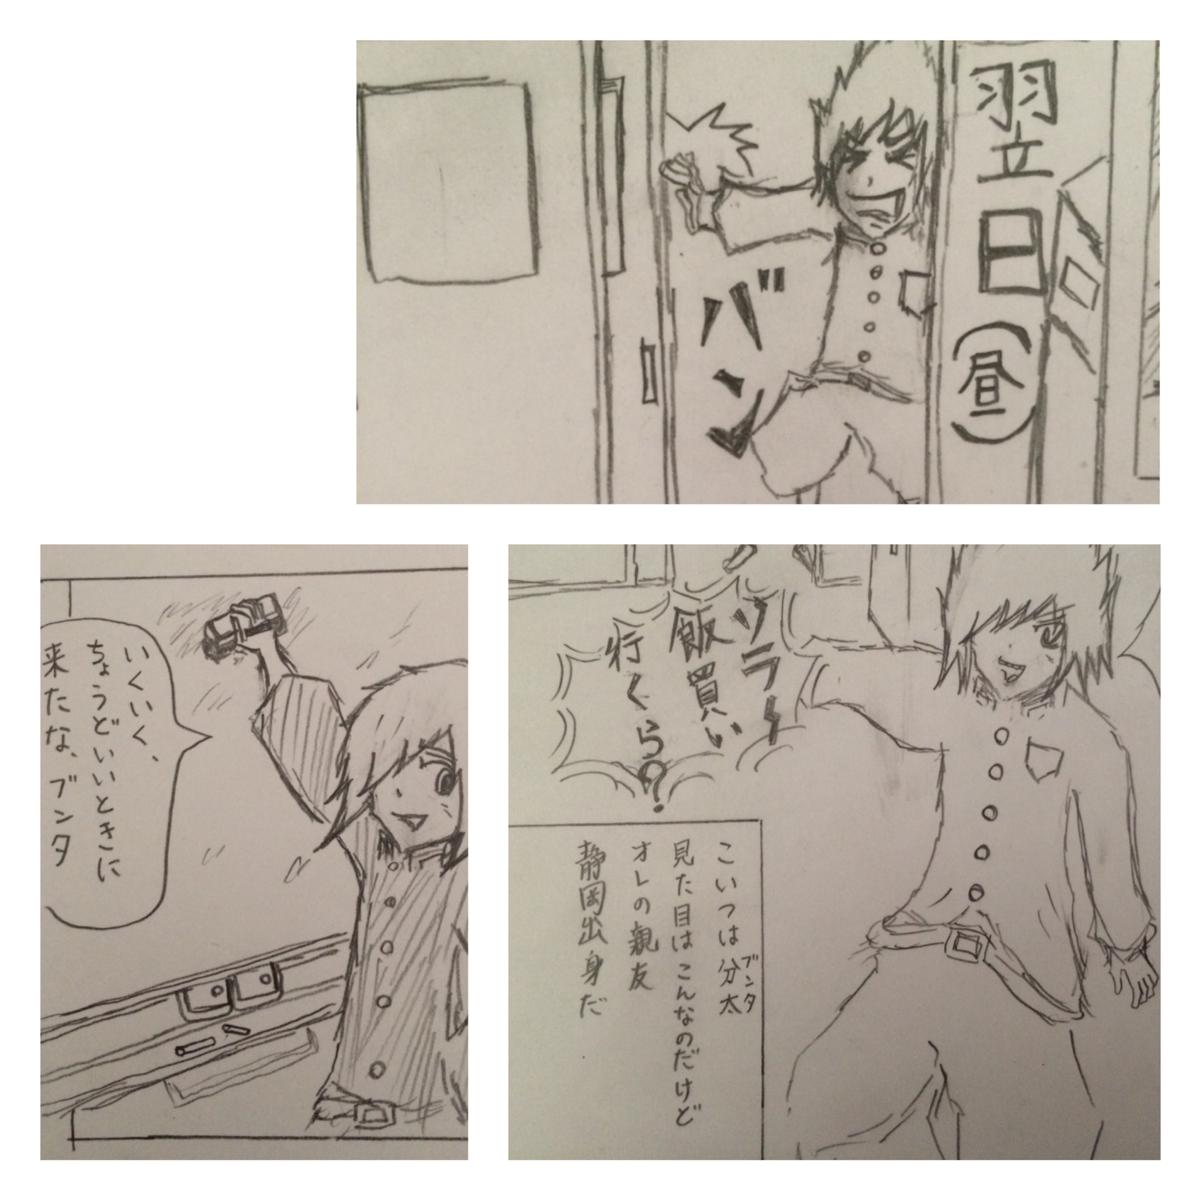 翌日(昼)
バン
ソラ〜
飯買い
行くら?
こいつは分太
ブンタ
見た目はこんなのだけど
オレの親友
静岡出身だ
いくいく、
ちょうどいいときに
来たな、ブンタ